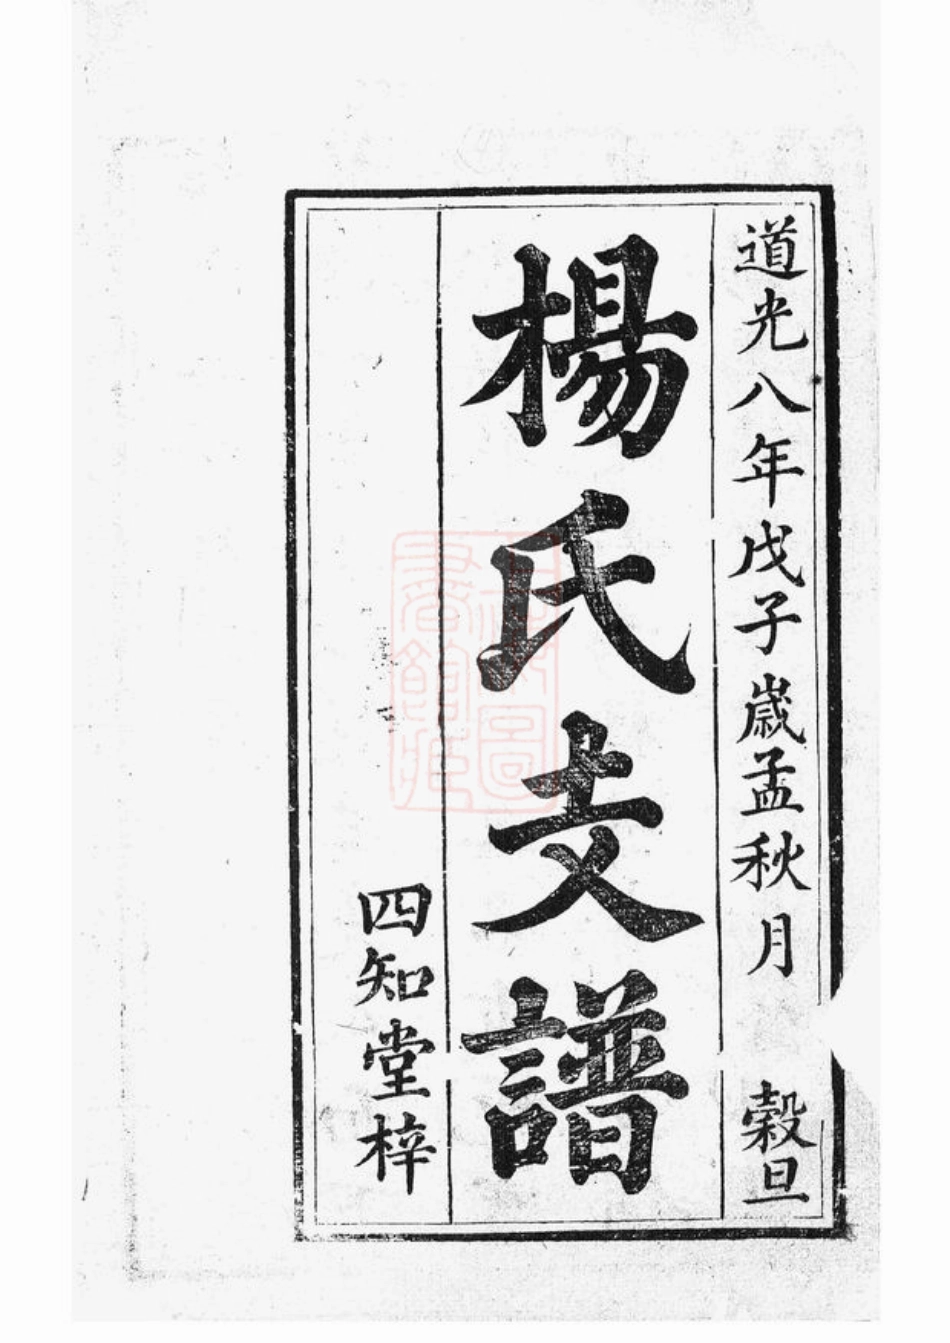 道光八年戊子歲孟秋月 穀旦
楊氏支譜
四知堂梓